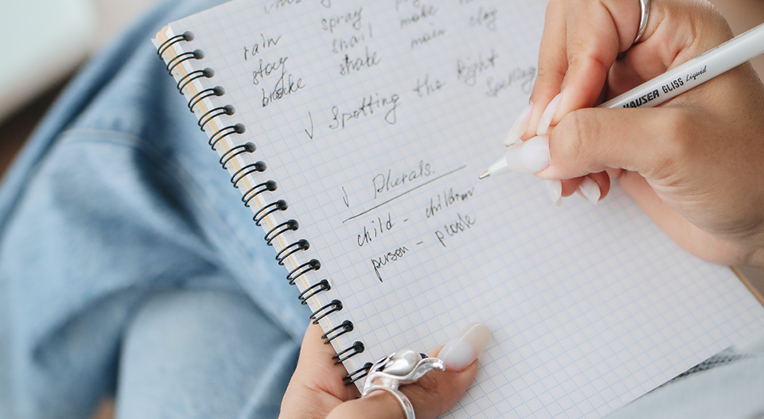 rain spray make
stay snail main slay
brake shake
✓ Spotting the Right
Spelling
✓ Plurals.
child - children
person - people
HAUSER GLISS Liquid